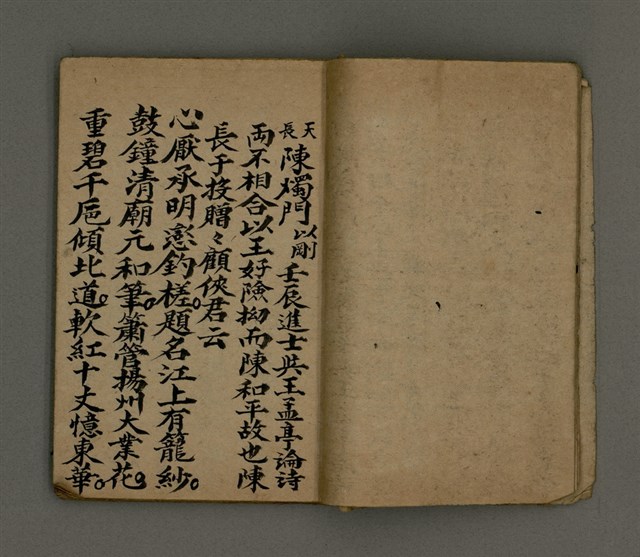 天長陳燭門以剛壬辰進士與王孟亭論詩
兩不相合以王好險拗而陳和平故也陳
長于投贈々顧俠君云
心厭承明戀釣槎題名江上有籠紗
鼓鐘清廟元和筆簫管揚州大業花
重碧千巵傾北道軟紅十丈憶東華